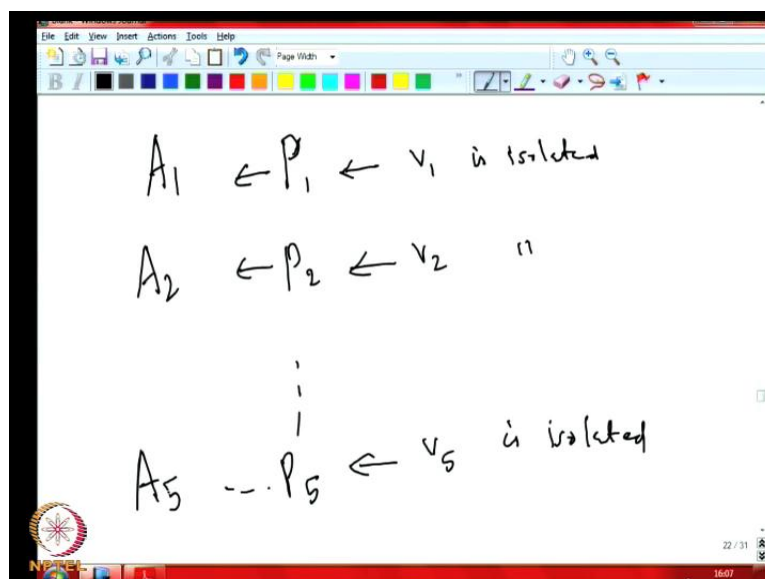 Blank - Windows Journal
File Edit View Insert Actions Tools Help
Page Width
B I
A1 ← P1 ← v1 is isolated
A2 ← P2 ← v2 "
A5 --- P5 ← v5 is isolated
22 / 31
NPTEL
16:07